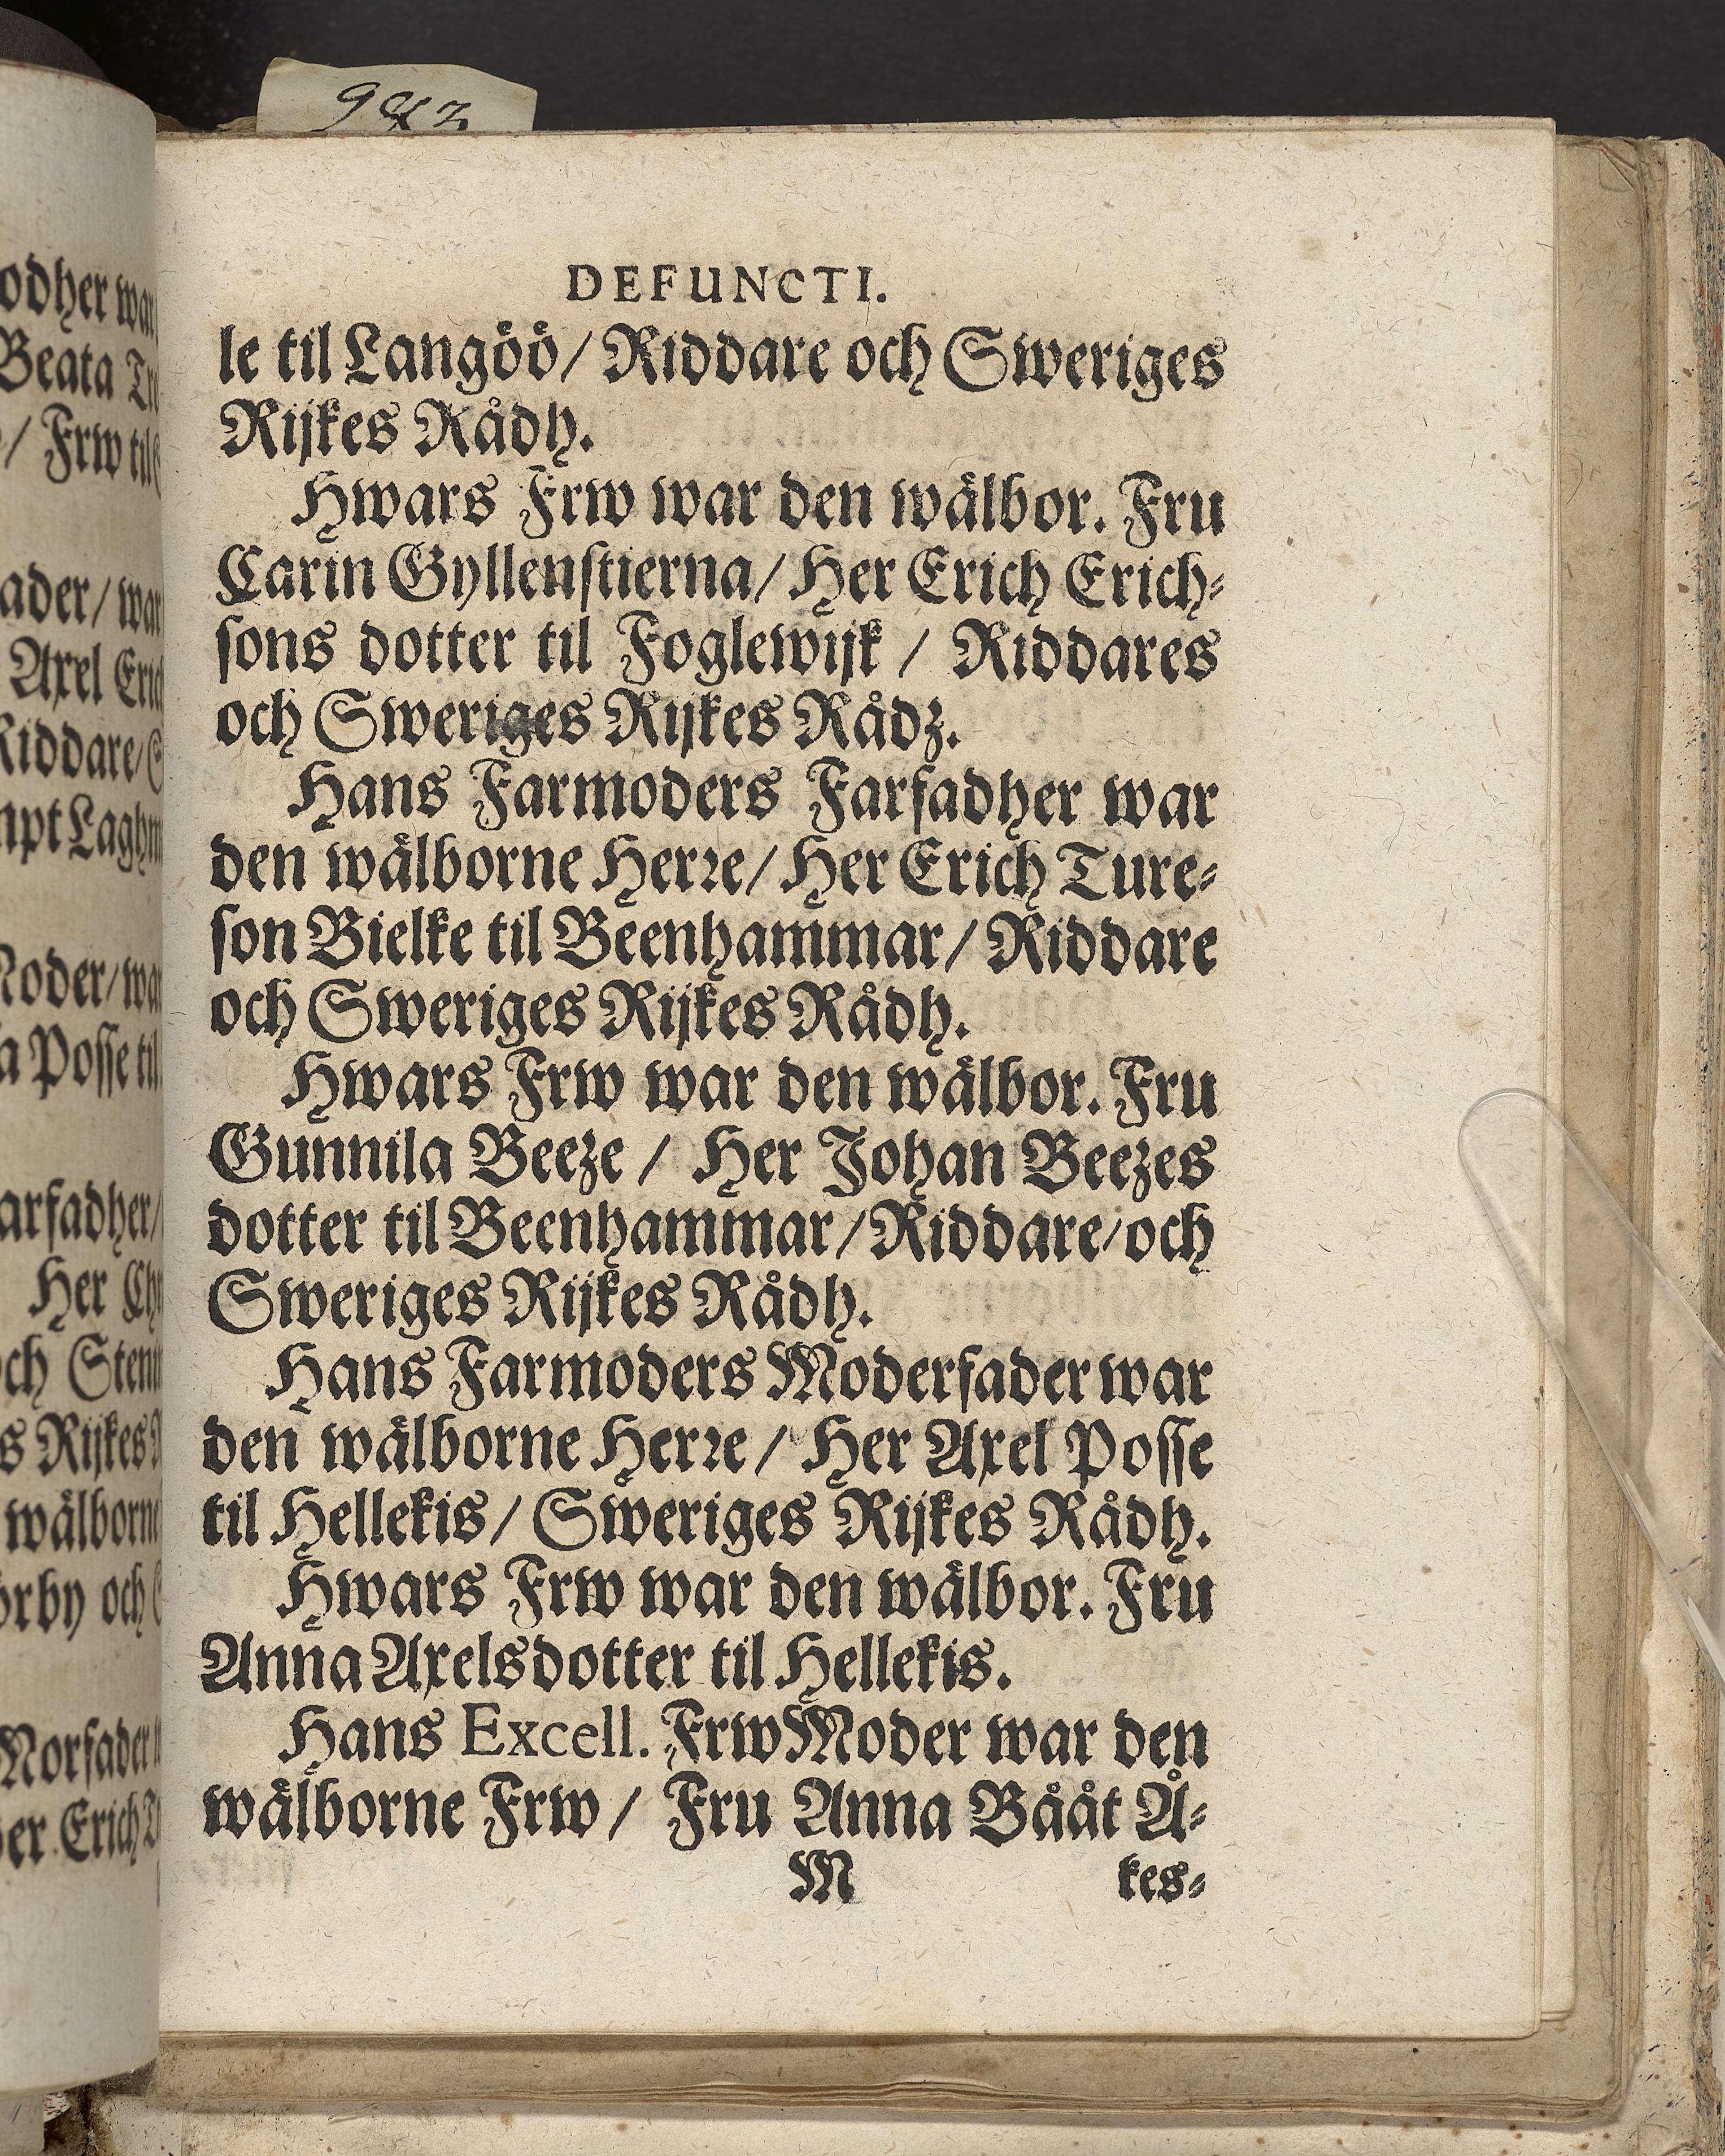 DEFUNCTI.
le til Langöö/ Riddare och Sweriges
Rijkes Rådh.
Hwars Frw war den wälbor. Fru
Carin Gyllenstierna/ Her Erich Erich-
sons dotter til Foglewijk / Riddares
och Sweriges Rijkes Rådz.
Hans Farmoders Farfadher war
den wälborne Herre/ Her Erich Ture-
son Bielke til Beenhammar/ Riddare
och Sweriges Rijkes Rådh.
Hwars Frw war den wälbor. Fru
Gunnila Beeze / Her Johan Beezes
dotter til Beenhammar/Riddare/och
Sweriges Rijkes Rådh.
Hans Farmoders Moderfader war
den wälborne Herre/ Her Axel Posse
til Hellekis/ Sweriges Rijkes Rådh.
Hwars Frw war den wälbor. Fru
Anna Axelsdotter til Hellekis.
Hans Excell. Frw Moder war den
wälborne Frw/ Fru Anna Bååt Å-
M kes-